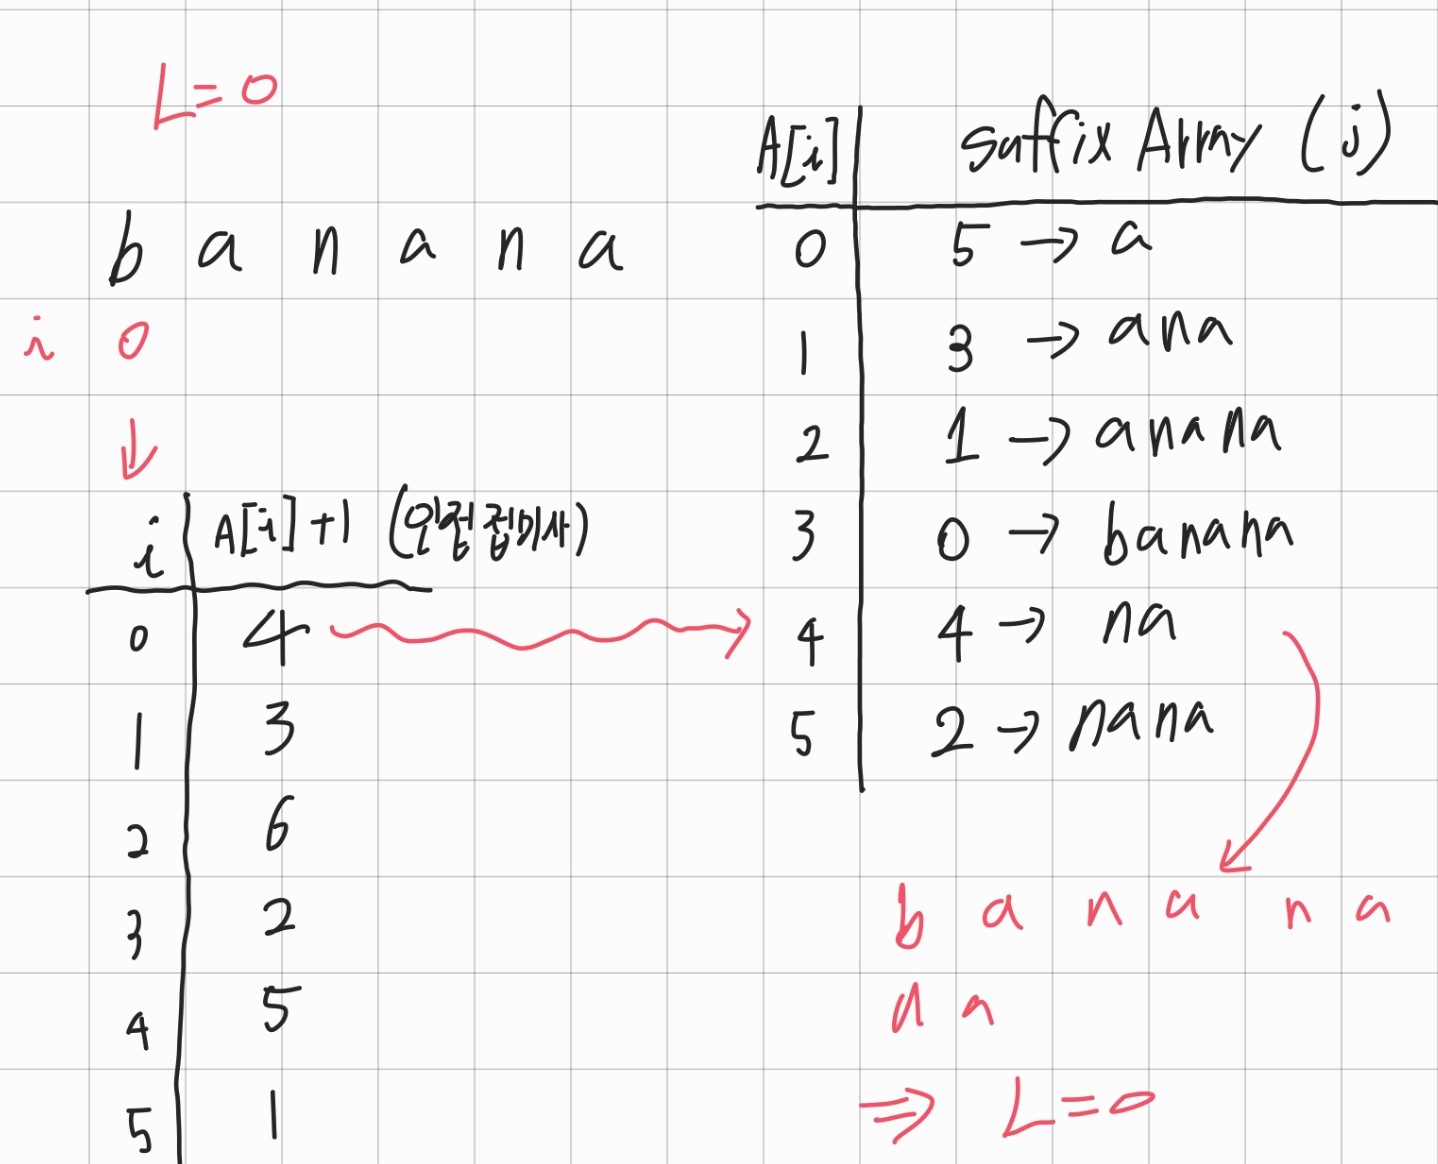 L=0
b a n a n a
i 0
↓
i A[i]+1 (인접 접미사)
0 4
1 3
2 6
3 2
4 5
5 1
A[i] Suffix Array (j)
0 5 → a
1 3 → ana
2 1 → anana
3 0 → banana
4 4 → na
5 2 → nana
b a n a n a
n a
⇒ L=0